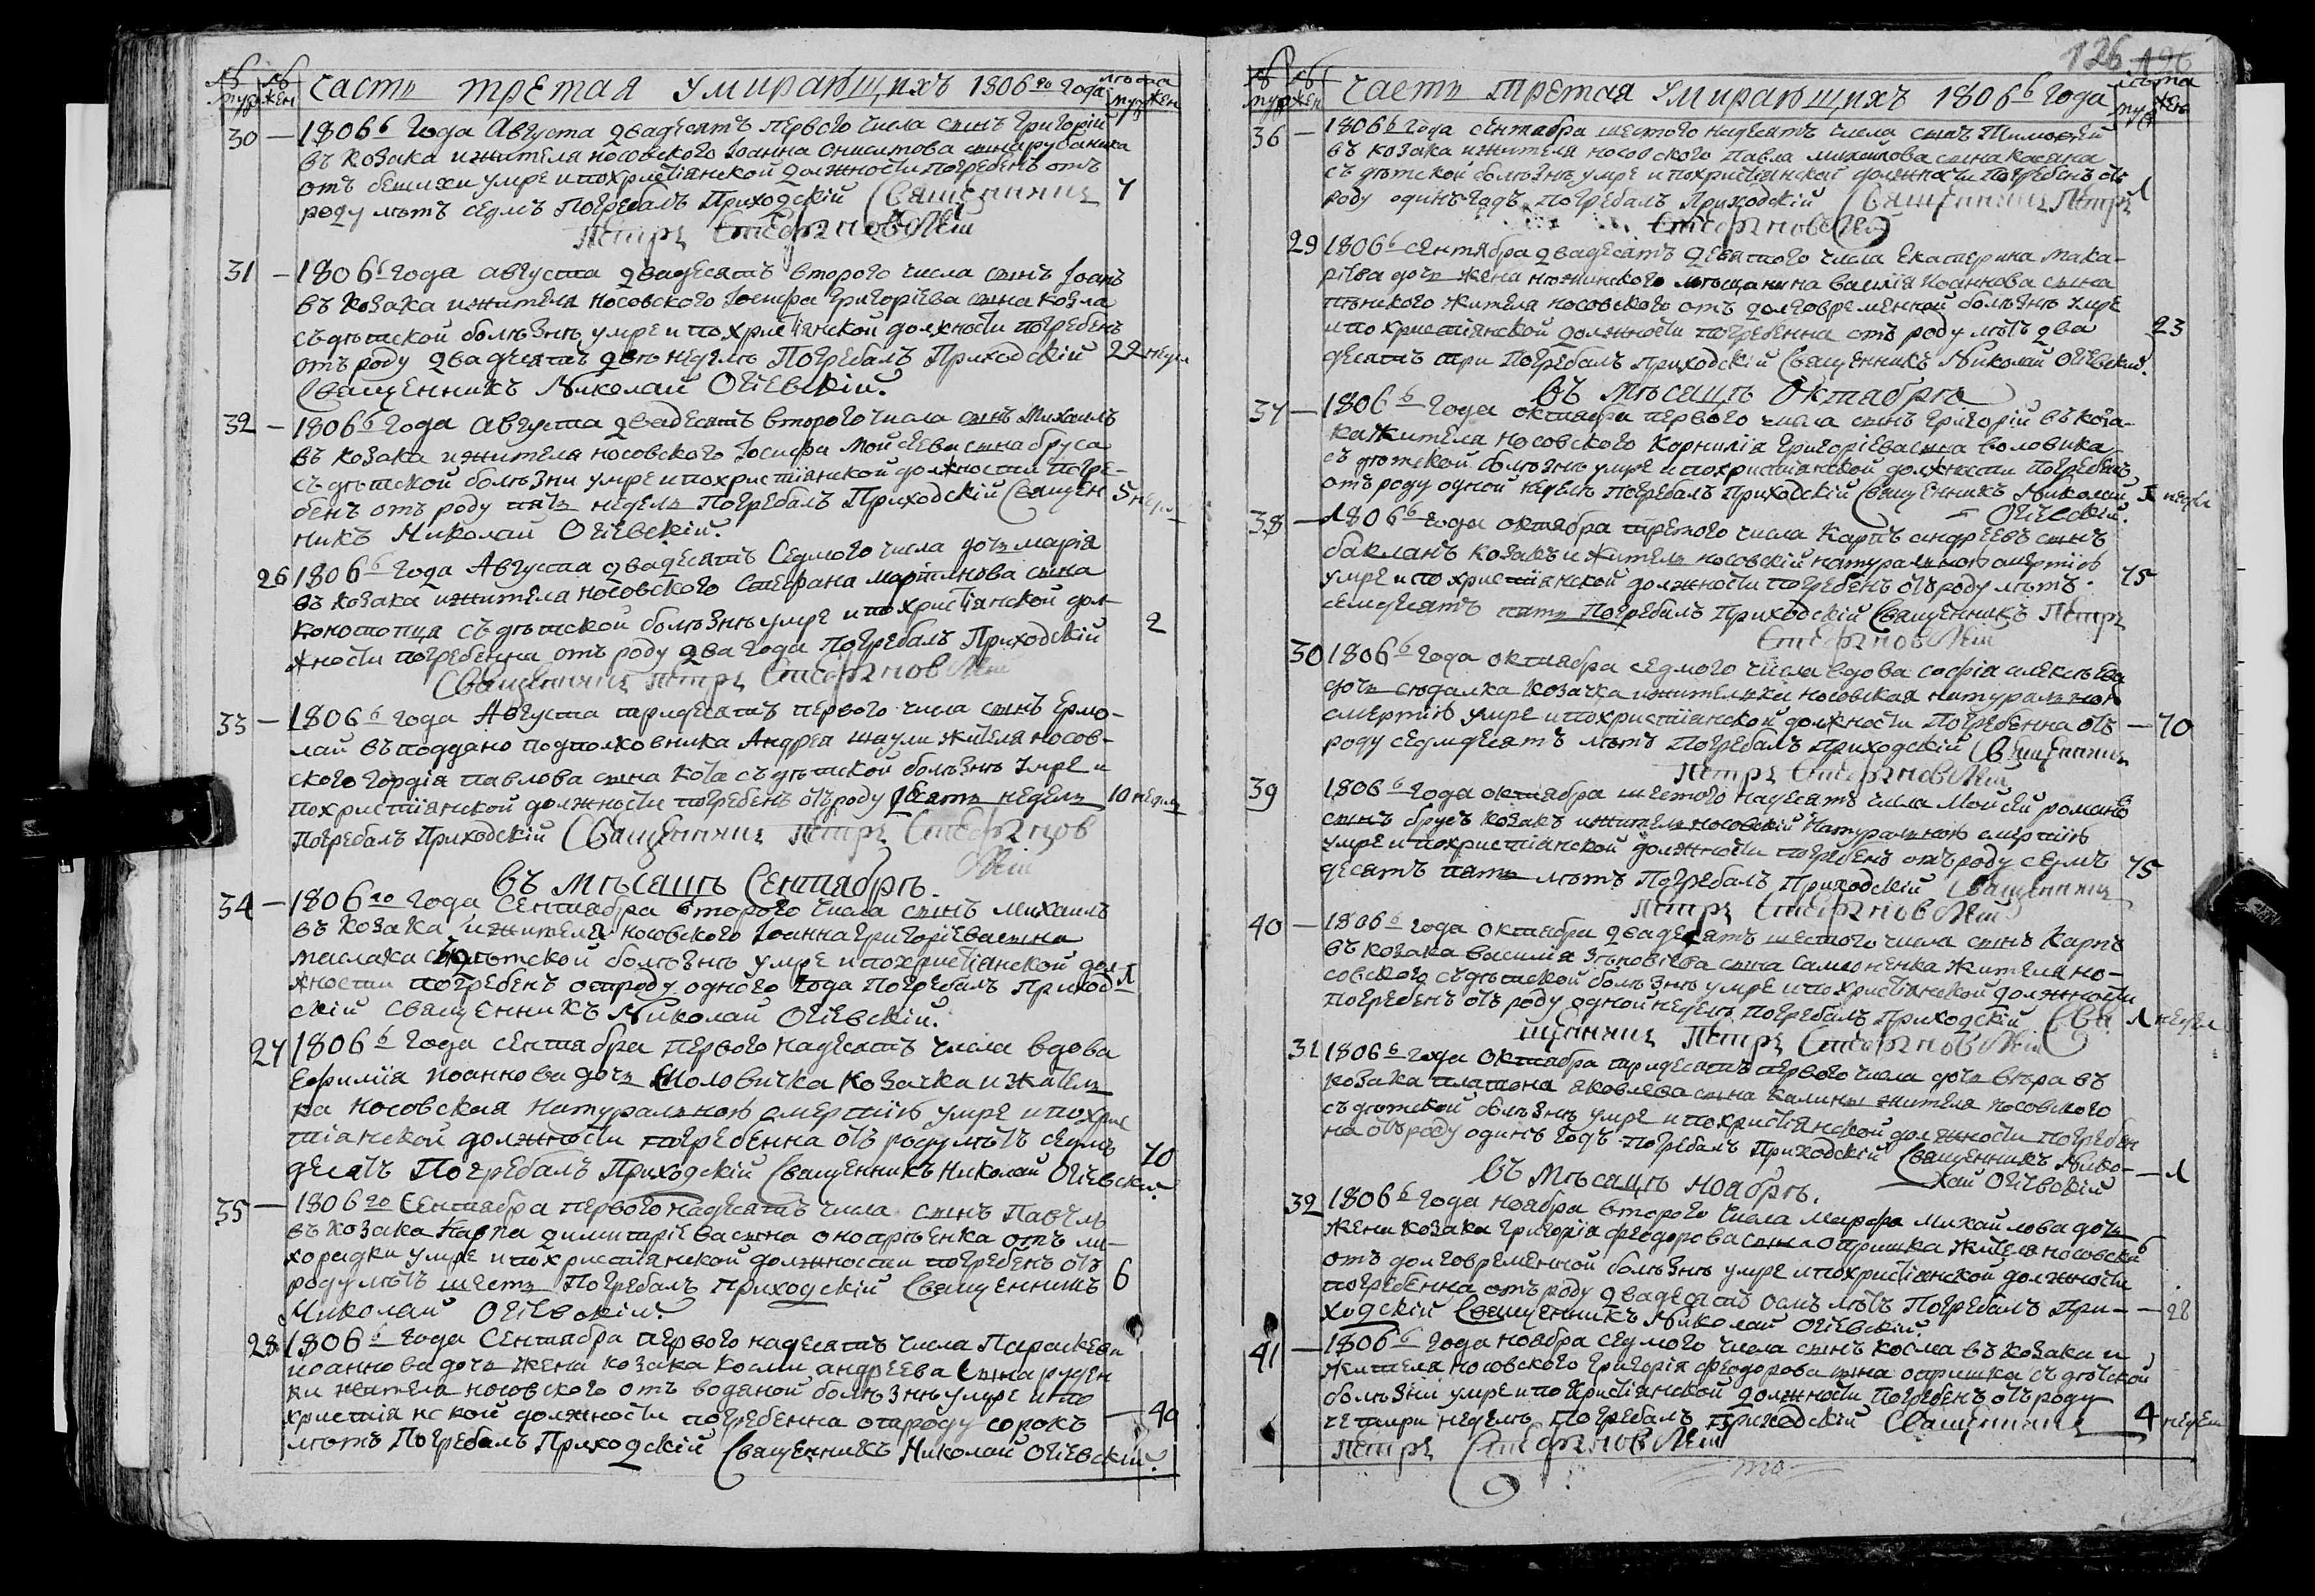 № муж № жен Часть третая умирающихъ 1806го года лѣта муж жен
30 — 1806го года Августа двадесятъ первого числа сынъ Григорій
въ козака и жителя носовского Іоанна сына
отъ умре и по христіянской должности погребенъ отъ
роду лѣтъ седмъ Погребалъ Приходскій Священникъ 7
Петръ Стефановскій
31 — 1806го года августа двадесятъ второго числа сынъ Іоанъ
въ козака и жителя носовского Іосифа Григоріева сына Козла
съ дѣтской болѣзнѣ умре и по христіянской должности погребенъ
отъ роду двадесятъ двѣ неделѣ Погребалъ Приходскій 22 недел
Священникъ Николай Огіевскій.
32 — 1806го года Августа двадесятъ второго числа сынъ Михаилъ
въ козака и жителя носовского Іосифа Мойсеева сына бруса
съ дѣтской болѣзни умре и по христіянской должности погре-
бенъ отъ роду пять недель Погребалъ Приходскій Священ 5 недел
никъ Николай Огіевскій.
26 1806го года Августа двадесятъ седмого числа дочь марія
въ козака и жителя носовского Стефана мартинова сына
конотопца съ дѣтской болѣзнѣ умре и по христіянской дол-
жности погребенна отъ роду два года Погребалъ Приходскій 2
Священникъ Петръ Стефановскій
33 — 1806го года Августа тридесятъ первого числа сынъ Ермо-
лай въ поддано подполковника Андрея шаули жителя носов-
ского гордія павлова сына кота съ дѣтской болѣзнѣ умре и
по христіянской должности погребенъ отъ роду десять недель 10 недель
Погребалъ Приходскій Священникъ Петръ Стефанов
скій
въ мѣсяцѣ Сентябрѣ.
34 — 1806го года Сентября второго числа сынъ Михаилъ
въ козака и жителя носовского Іоанна Григоріева сына
маслака съ дѣтской болѣзнѣ умре и по христіянской дол-
жности погребенъ отроду одного года Погребалъ Приход 1
скій Священникъ Николай Огіевскій.
27 1806го года сентября первого надесятъ числа вдова
Ефимія иоаннова дочь козачка и житель
ка носовская натуральною смертію умре и по хрис
тіанской должности погребенна отъ роду лѣтъ седмъ 70
десятъ Погребалъ Приходскій Священникъ Николай Огіевскій.
35 — 1806го Сентября первого надесятъ числа сынъ Павелъ
въ козака Карпа димитріева сына оноприенка отъ ли-
хорадки умре и по христіянской должности погребенъ отъ
роду лѣтъ шесть Погребалъ Приходскій Священникъ 6
Николай Огіевскій.
28 1806го года Сентября первого надесятъ числа Параскева
иоаннова дочь жена козака косми андреева сына руден
ки жителя носовского отъ водяной болѣзнѣ умре и по
христіянской должности погребенна отроду сорокъ — 40
лѣтъ Погребалъ Приходскій Священникъ Николай Огіевскій.
126 126
№ муж № жен Часть третая умирающихъ 1806го года лѣта муж жен
36 — 1806го года сентября шестого надесятъ числа сынъ Тимофей
въ козака и жителя носовского Павла михайлова сына касяна
съ дѣтской болѣзнѣ умре и по христіянской должности погребенъ отъ
роду одинъ годъ Погребалъ Приходскій Священникъ Петръ 1
Стефановскій
29 1806го сентября двадесятъ девятого числа Екатерина мака-
ріева дочь жена нѣжинского мѣщанина василія иоаннова сына
жителя носовского отъ долговременной болѣзнѣ умре
и по христіянской должности погребенна отъ роду лѣтъ два 23
десятъ три Погребалъ Приходскій Священникъ Николай Огіевскій.
въ мѣсяцѣ Октябрѣ
37 — 1806го года октября первого числа сынъ Григорій въ коза-
ка жителя носовского Корнилія Григоріева сына воловика
съ дѣтской болѣзнѣ умре и по христіянской должности погребенъ
отъ роду одной неделѣ Погребалъ Приходскій Священникъ Николай 1 недел
Огіевскій.
38 — 1806го года октября третого числа Карпъ андреевъ сынъ
бакланъ козакъ и житель носовскій натуральною смертію
умре и по христіянской должности погребенъ отъ роду лѣтъ 75
семдесятъ пять Погребалъ Приходскій Священникъ Петръ
Стефановскій
30 1806го года октября седмого числа вдова софія алексѣева
дочь козачка и жителька носовская натуральною
смертію умре и по христіянской должности Погребенна отъ — 70
роду седмдесятъ лѣтъ Погребалъ Приходскій Священникъ
Петръ Стефановскій
39 1806го года октября шестого надесятъ числа Мойсей романовъ
сынъ брусъ козакъ и житель носовскій натуральною смертію
умре и по христіянской должности погребенъ отъ роду седмъ 75
десятъ пять лѣтъ Погребалъ Приходскій Священникъ
Петръ Стефановскій
40 — 1806го года Октября двадесятъ шестого числа сынъ Карпъ
въ козака василія сына самоненка жителя но-
совского съ дѣтской болѣзнѣ умре и по христіянской должности
погребенъ отъ роду одной неделѣ погребалъ Приходскій Свя 1 недел
щенникъ Петръ Стефановскій
31 1806го года Октября тридесятъ первого числа дочь вѣра въ
козака платона яковлева сына калини жителя носовского
съ дѣтской болѣзнѣ умре и по христіянской должности погребен
на отъ роду одинъ годъ Погребалъ Приходскій Священникъ Нико- — 1
лай Огіевскій
въ мѣсяцѣ ноябрѣ.
32 1806го года ноября второго числа Марфа Михайлова дочь
жена козака Григорія феодорова сына опришка жителя носовског
отъ долговременной болѣзнѣ умре и по христіянской должности
погребенна отъ роду двадесятъ осмъ лѣтъ Погребалъ При- — 28
ходскій Священникъ Николай Огіевскій.
41 — 1806го года ноября седмого числа сынъ косма въ козака и
жителя носовского Григорія феодорова сына опришка съ дѣтской
болѣзни умре и по христіянской должности Погребенъ отъ роду
четыри неделѣ Погребалъ Приходскій Священникъ 4 недели
Петръ Стефановскій